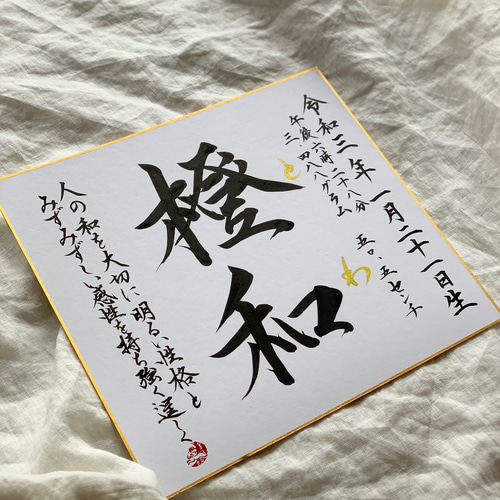 令和三年一月二十一日生
午後六時二十八分
三、四八八グラム
五〇、五センチ
橙和
とわ
人の和を大切に明るい性格と
みずみずしい感性を持ち強く逞しく